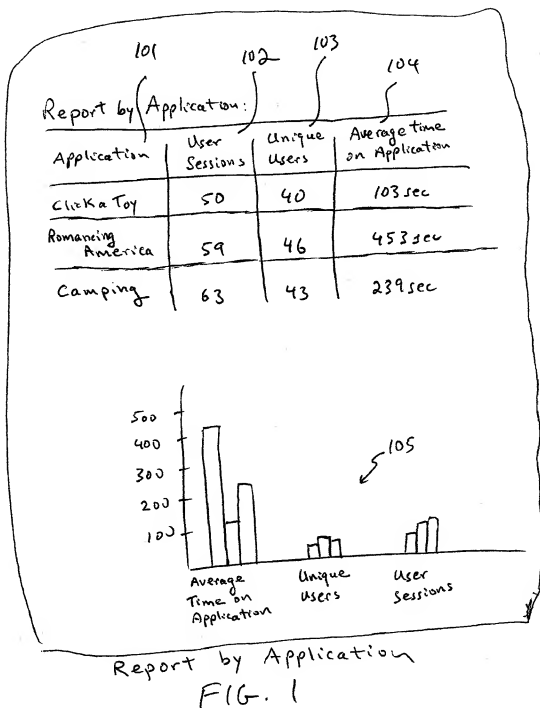 101 102 103 104
Report by Application:
Application User Sessions Unique Users Average time on Application
Click a Toy 50 40 103 sec
Romancing America 59 46 453 sec
Camping 63 43 239 sec
500
400
300
200
100
105
Average Time on Application Unique Users User Sessions
Report by Application
FIG. 1